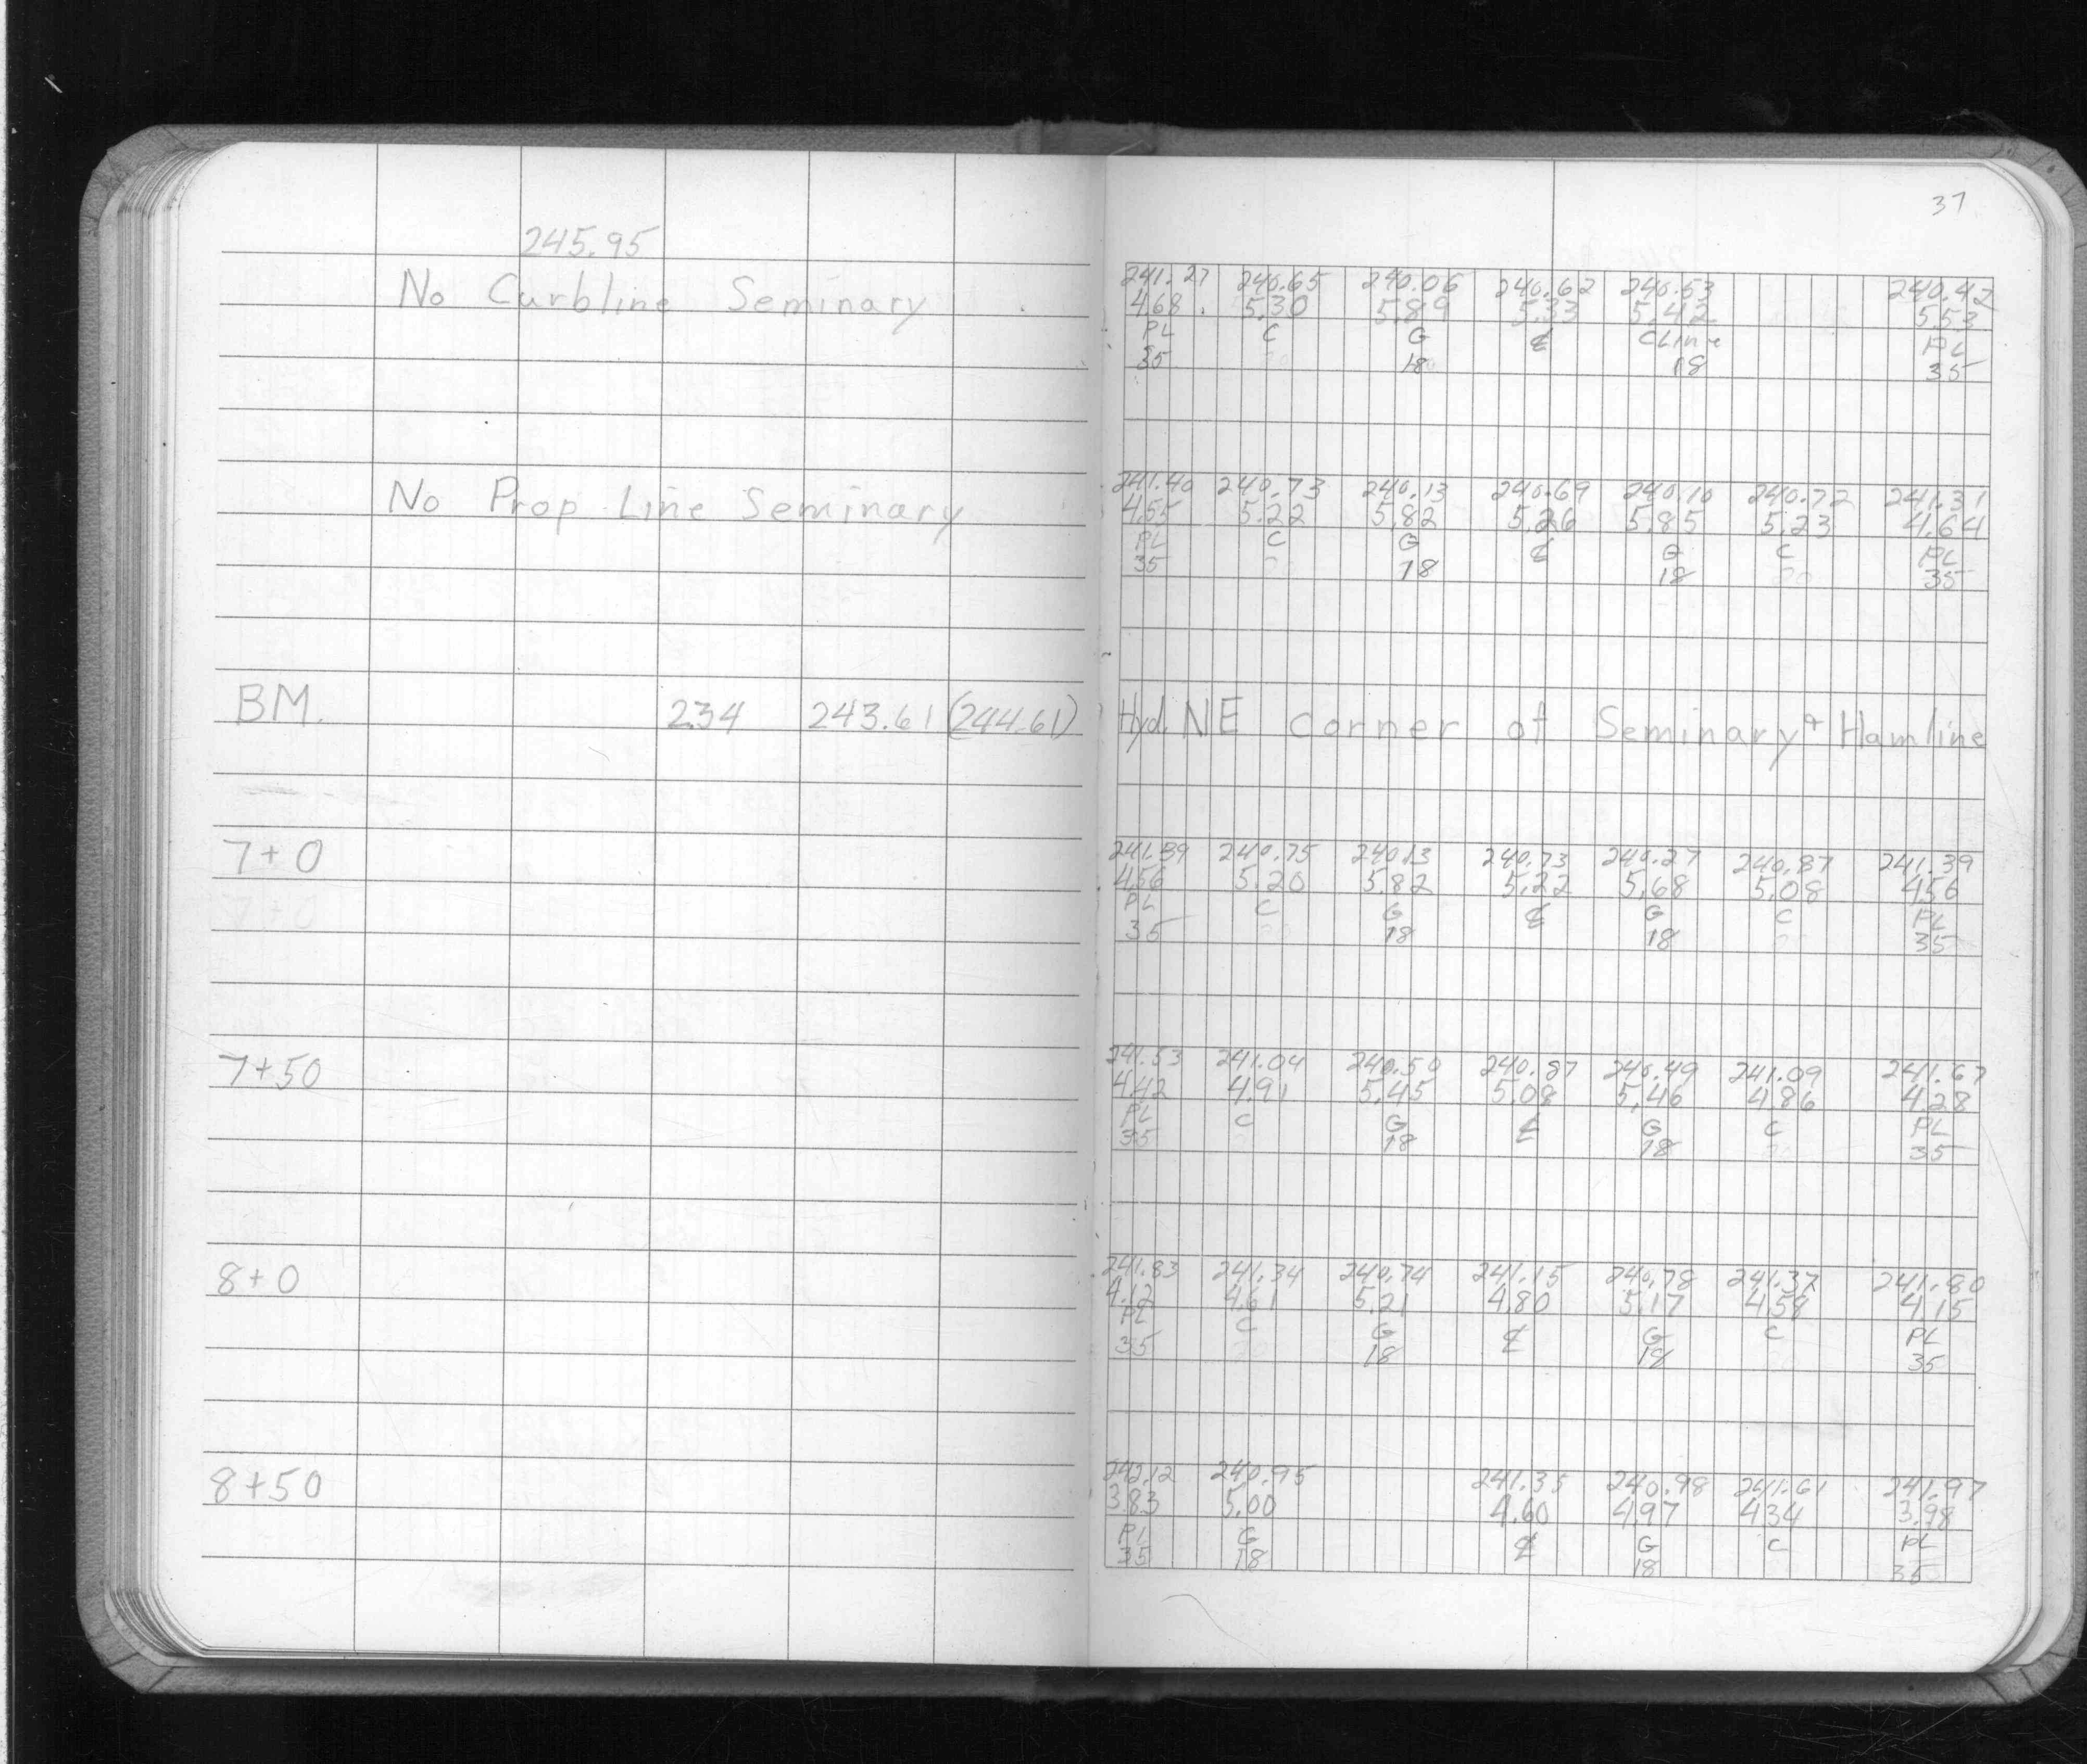 37
245.95
No Curbline Seminary
241.27 240.65 240.06 240.62 240.53 240.42
4.68 5.30 5.89 5.33 5.42 5.53
PL C G ℄ CLine PL
35 18 18 35
No Prop Line Seminary
241.40 240.73 240.13 240.69 240.10 240.72 241.31
4.55 5.22 5.82 5.26 5.85 5.23 4.64
PL C G ℄ G C PL
35 18 18 35
BM. 2.34 243.61 (244.61) Hyd. NE corner of Seminary + Hamline
7+0
241.39 240.75 240.13 240.73 240.27 240.87 241.39
4.56 5.20 5.82 5.22 5.68 5.08 4.56
PL C G ℄ G C PL
35 18 18 35
7+50
241.53 241.04 240.50 240.87 240.49 241.09 241.67
4.42 4.91 5.45 5.08 5.46 4.86 4.28
PL C G ℄ G C PL
35 18 18 35
8+0
241.83 241.34 240.74 241.15 240.78 241.37 241.80
4.12 4.61 5.21 4.80 5.17 4.58 4.15
PL C G ℄ G C PL
35 18 18 35
8+50
242.12 240.95 241.35 240.98 241.61 241.97
3.83 5.00 4.60 4.97 4.34 3.98
PL G ℄ G C PL
35 18 18 35